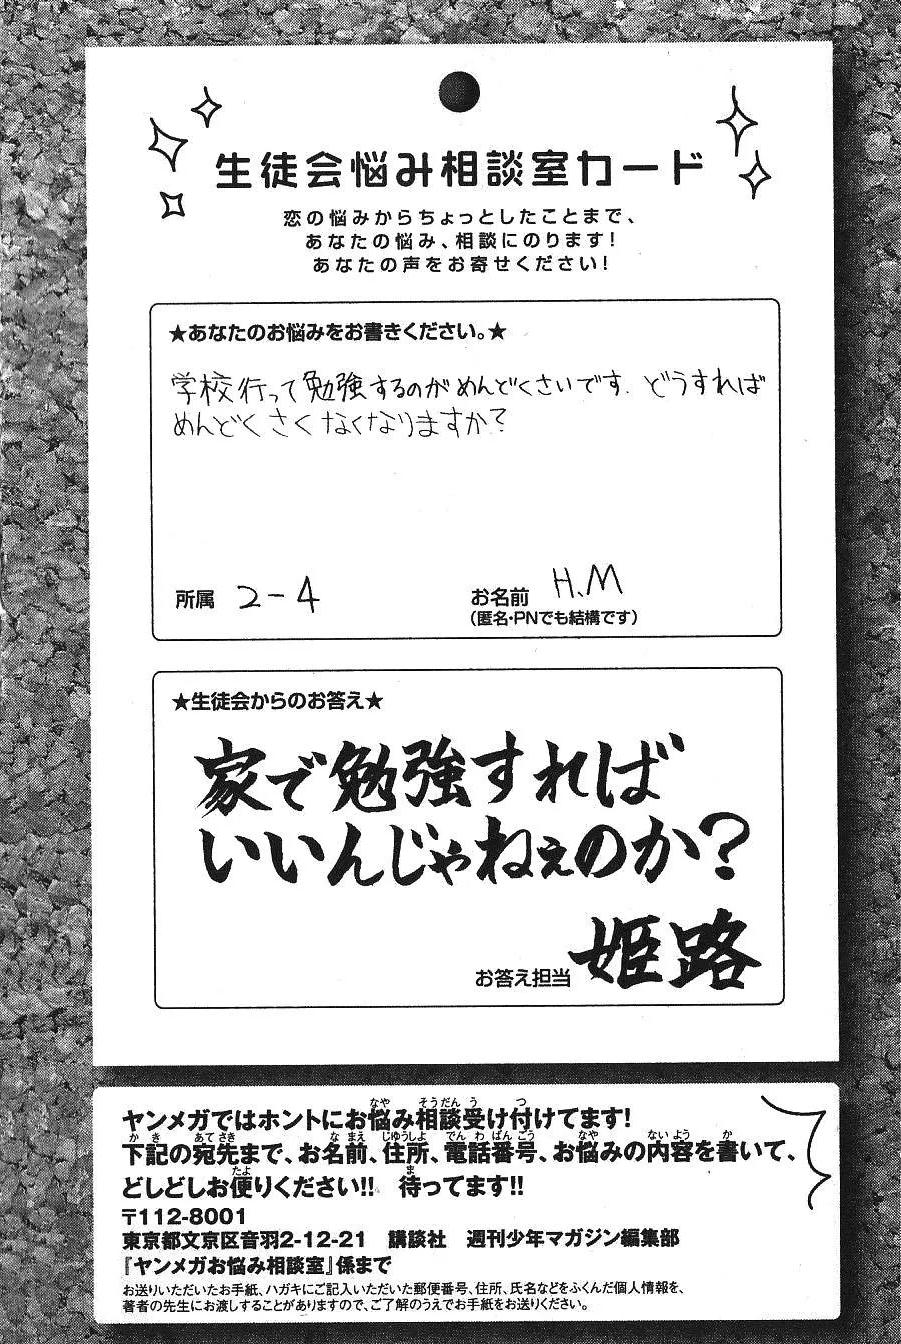 生徒会悩み相談室カード
恋の悩みからちょっとしたことまで、
あなたの悩み、相談にのります!
あなたの声をお寄せください!
★あなたのお悩みをお書きください。★
学校行って勉強するのがめんどくさいです. どうすれば
めんどくさくなくなりますか?
所属 2-4 お名前 H.M
(匿名・PNでも結構です)
★生徒会からのお答え★
家で勉強すれば
いいんじゃねぇのか?
お答え担当 姫路
ヤンメガではホントにお悩み相談受け付けてます!
下記の宛先まで、お名前、住所、電話番号、お悩みの内容を書いて、
どしどしお便りください!! 待ってます!!
〒112-8001
東京都文京区音羽2-12-21 講談社 週刊少年マガジン編集部
『ヤンメガお悩み相談室』係まで
お送りいただいたお手紙、ハガキにご記入いただいた郵便番号、住所、氏名などをふくんだ個人情報を、
著者の先生にお渡しすることがありますので、ご了解のうえでお手紙をお送りください。